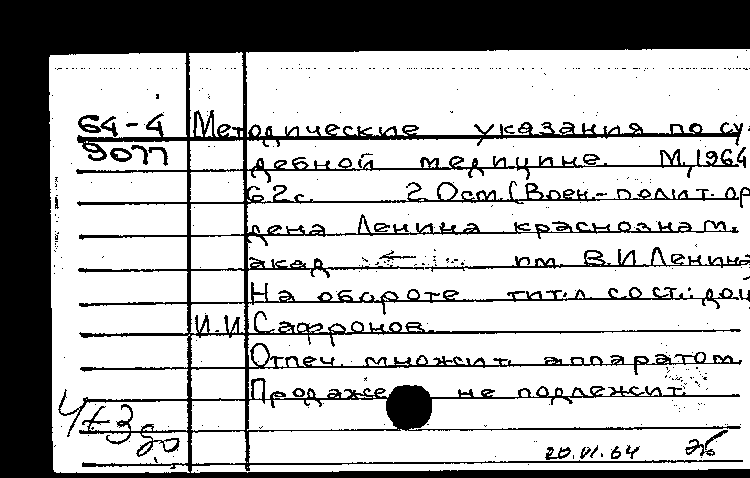 64-4 Методические указания по су-
9077 дебной медицине. М, 1964
62с. 2 Ост. (Воен.-полит. ор
дена Ленина краснознам.
акад им. В.И.Ленина
На обороте тит.л сост.: доц
И.И Сафронов.
Отпеч. множит. аппаратом.
Продаже не подлежит.
20.VI.64